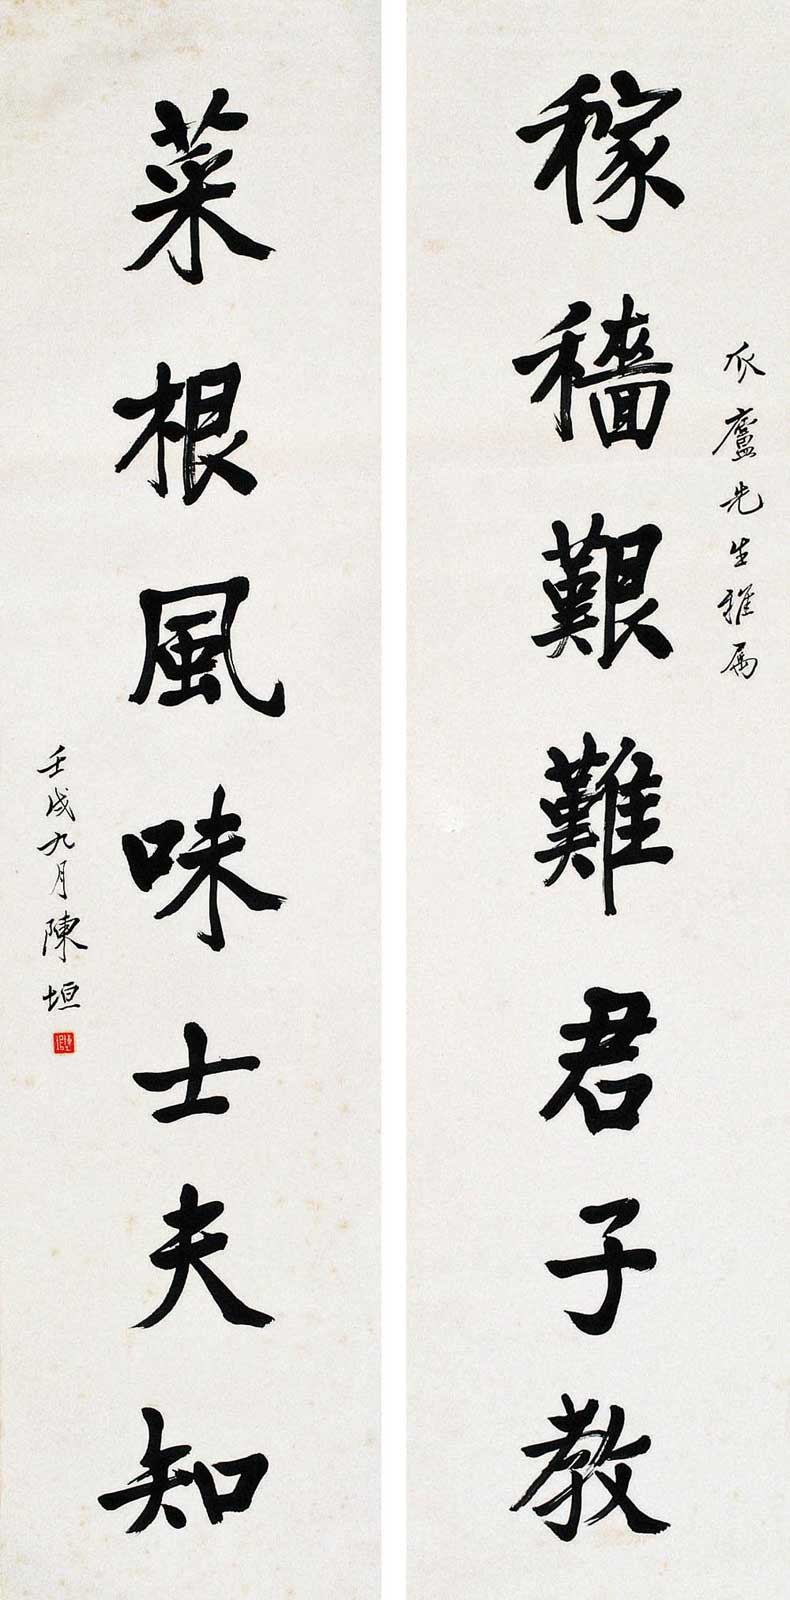 稼穡艱難君子教
瓜廬先生雅属
菜根風味士夫知
壬戌九月陳垣